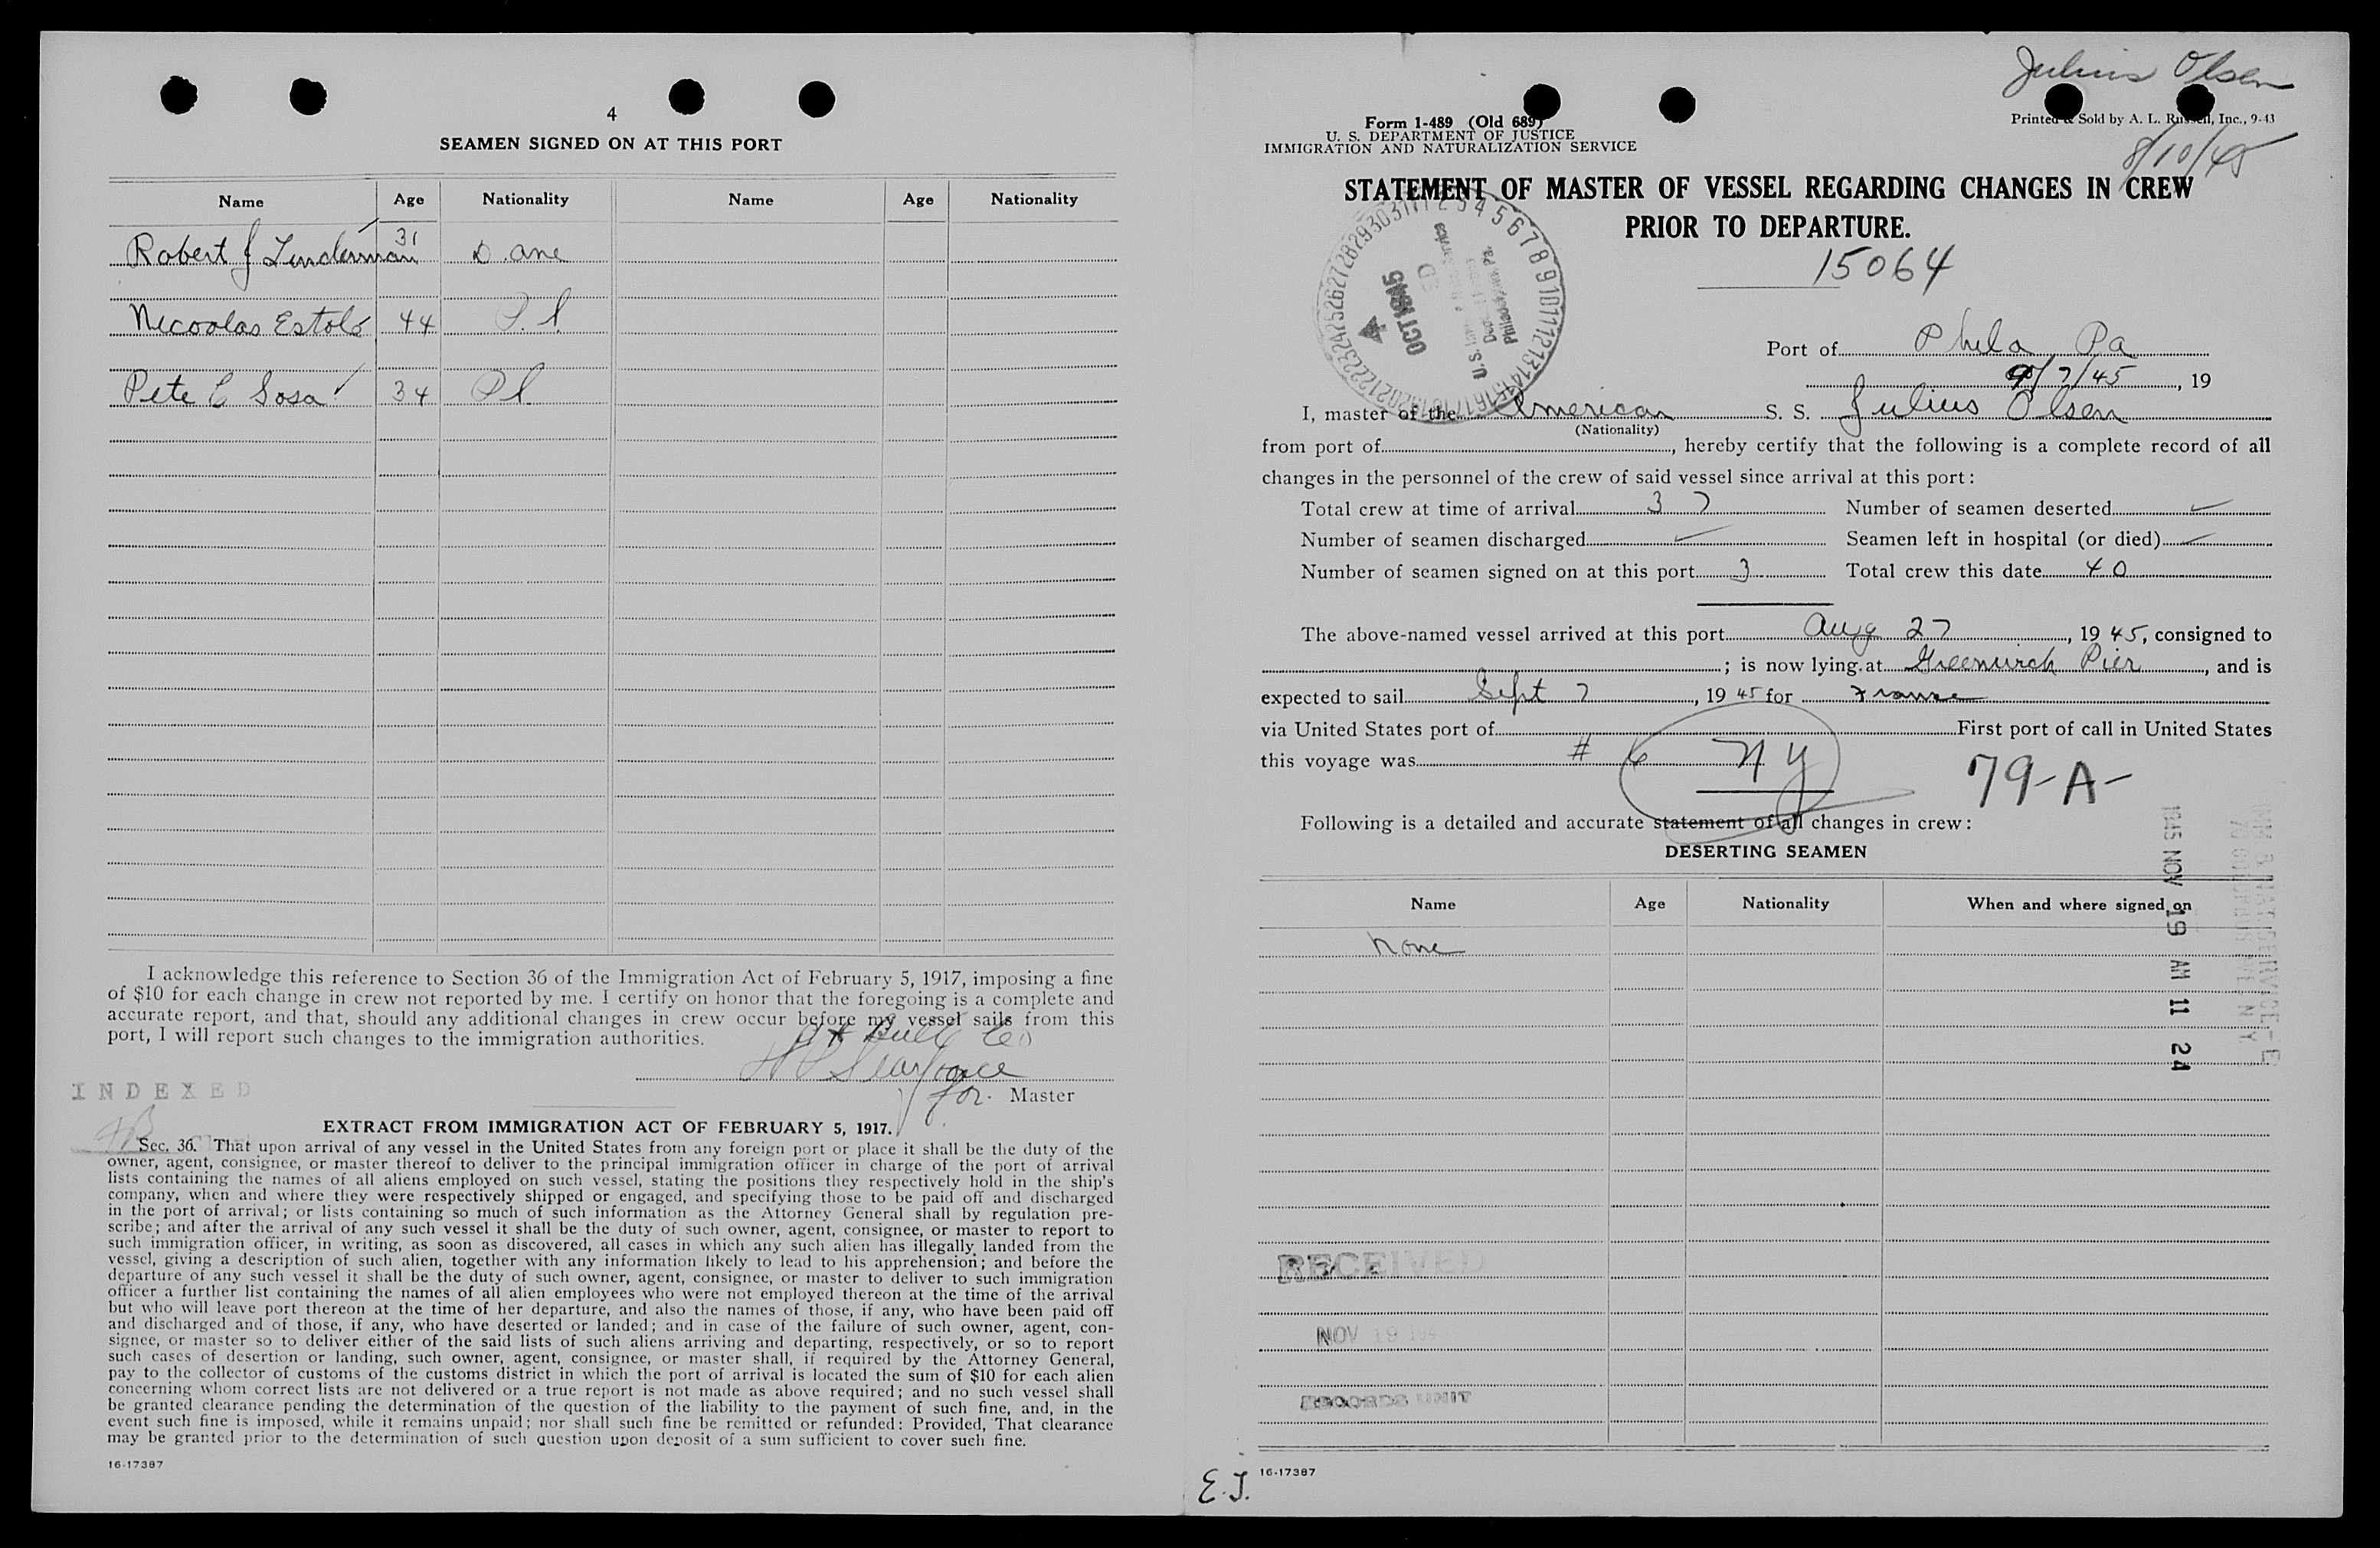 4
SEAMEN SIGNED ON AT THIS PORT
Name Age Nationality Name Age Nationality
Robert J Linderman 31 Dane
Nicoolas Estolo 44 P.I.
Pete C Sosa 34 PI
I acknowledge this reference to Section 36 of the Immigration Act of February 5, 1917, imposing a fine
of $10 for each change in crew not reported by me. I certify on honor that the foregoing is a complete and
accurate report, and that, should any additional changes in crew occur before my vessel sails from this
port, I will report such changes to the immigration authorities.
Bull Co
for Master
INDEXED
EXTRACT FROM IMMIGRATION ACT OF FEBRUARY 5, 1917.
Sec. 36. That upon arrival of any vessel in the United States from any foreign port or place it shall be the duty of the
owner, agent, consignee, or master thereof to deliver to the principal immigration officer in charge of the port of arrival
lists containing the names of all aliens employed on such vessel, stating the positions they respectively hold in the ship's
company, when and where they were respectively shipped or engaged, and specifying those to be paid off and discharged
in the port of arrival; or lists containing so much of such information as the Attorney General shall by regulation pre-
scribe; and after the arrival of any such vessel it shall be the duty of such owner, agent, consignee, or master to report to
such immigration officer, in writing, as soon as discovered, all cases in which any such alien has illegally landed from the
vessel, giving a description of such alien, together with any information likely to lead to his apprehension; and before the
departure of any such vessel it shall be the duty of such owner, agent, consignee, or master to deliver to such immigration
officer a further list containing the names of all alien employees who were not employed thereon at the time of the arrival
but who will leave port thereon at the time of her departure, and also the names of those, if any, who have been paid off
and discharged and of those, if any, who have deserted or landed; and in case of the failure of such owner, agent, con-
signee, or master so to deliver either of the said lists of such aliens arriving and departing, respectively, or so to report
such cases of desertion or landing, such owner, agent, consignee, or master shall, if required by the Attorney General,
pay to the collector of customs of the customs district in which the port of arrival is located the sum of $10 for each alien
concerning whom correct lists are not delivered or a true report is not made as above required; and no such vessel shall
be granted clearance pending the determination of the question of the liability to the payment of such fine, and, in the
event such fine is imposed, while it remains unpaid; nor shall such fine be remitted or refunded: Provided, That clearance
may be granted prior to the determination of such question upon deposit of a sum sufficient to cover such fine.
16-17387
Julius Olsen
Form 1-489 (Old 689)
U. S. DEPARTMENT OF JUSTICE
IMMIGRATION AND NATURALIZATION SERVICE
Printed & Sold by A. L. Russell, Inc., 9-43
8/10/45
STATEMENT OF MASTER OF VESSEL REGARDING CHANGES IN CREW
PRIOR TO DEPARTURE.
15064
OCT 1945
Philadelphia, Pa.
Port of Phila, Pa
9/7/45, 19
I, master of the American S. S. Julius Olsen
(Nationality)
from port of , hereby certify that the following is a complete record of all
changes in the personnel of the crew of said vessel since arrival at this port:
Total crew at time of arrival 37 Number of seamen deserted ✓
Number of seamen discharged ✓ Seamen left in hospital (or died) ✓
Number of seamen signed on at this port 3 Total crew this date 40
The above-named vessel arrived at this port Aug 27, 1945, consigned to
; is now lying at Greenwich Pier, and is
expected to sail Sept 7, 1945 for France
via United States port of First port of call in United States
this voyage was # 6 NY
79-A-
Following is a detailed and accurate statement of all changes in crew:
DESERTING SEAMEN
Name Age Nationality When and where signed on
None
1945 NOV 19 AM 11 24
RECEIVED
NOV 19 194
RECORDS UNIT
E.J.
16-17387